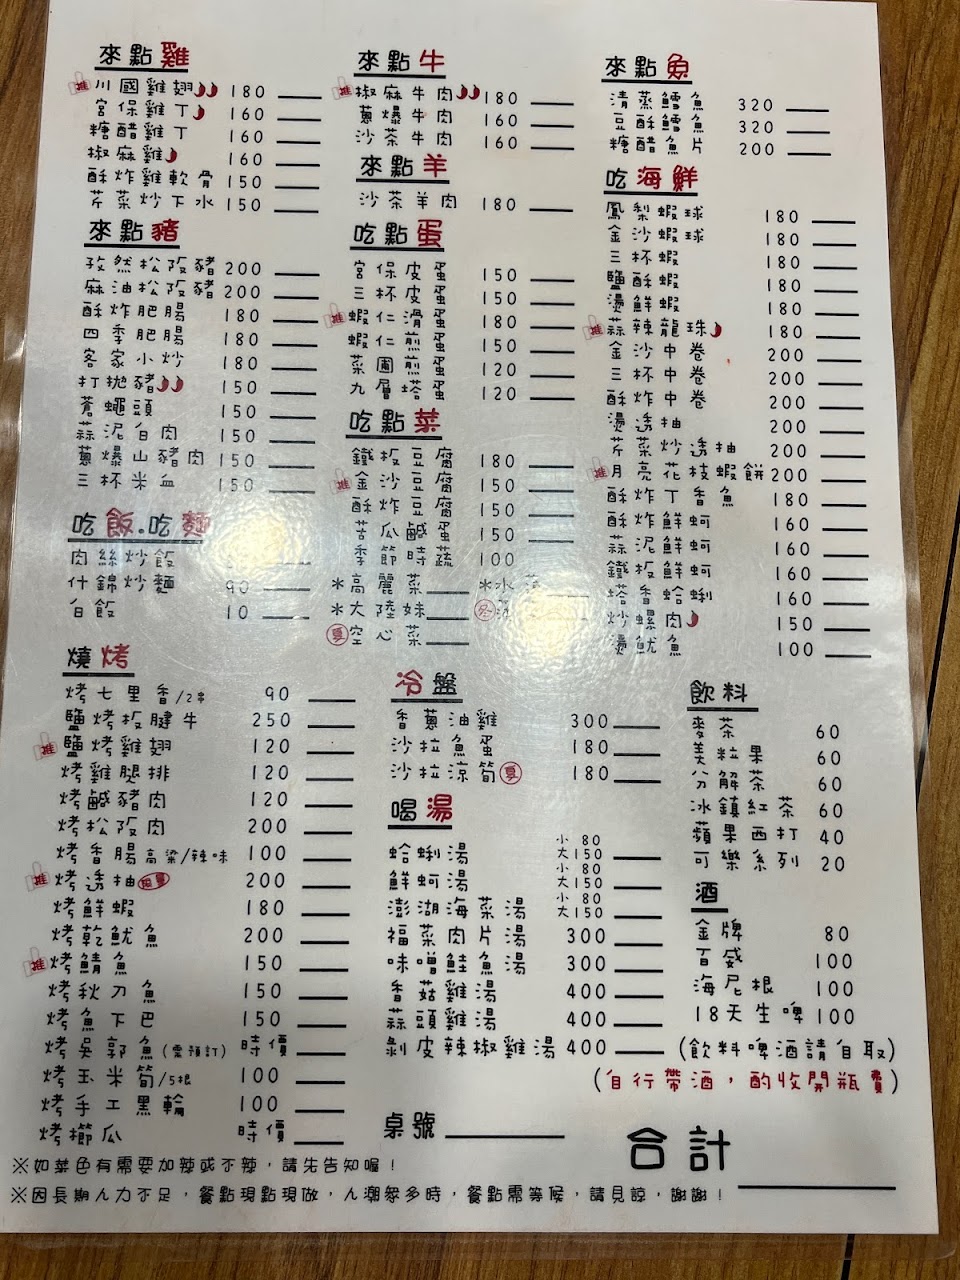 來點雞
推 川國雞翅 180
宮保雞丁 160
糖醋雞丁 160
椒麻雞 160
酥炸雞軟骨 150
芹菜炒下水 150
來點豬
孜然松阪豬 200
麻油松阪豬 200
酥炸肥腸 180
四季肥腸 180
客家小炒 180
打拋豬 150
蒼蠅頭 150
蒜泥白肉 150
蔥爆山豬肉 150
三杯米血 150
吃飯.吃麵
肉絲炒飯
什錦炒麵 90
白飯 10
燒烤
烤七里香/2串 90
鹽烤板腱牛 250
推 鹽烤雞翅 120
烤雞腿排 120
烤鹹豬肉 120
烤松阪肉 200
烤香腸高粱/辣味 100
推 烤透抽 200
烤鮮蝦 180
烤乾魷魚 200
推 烤鯖魚 150
烤秋刀魚 150
烤魚下巴 150
烤吳郭魚(需預訂) 時價
烤玉米筍/5根 100
烤手工黑輪 100
烤櫛瓜 時價
來點牛
推 椒麻牛肉 180
蔥爆牛肉 160
沙茶牛肉 160
來點羊
沙茶羊肉 180
吃點蛋
宮保皮蛋 150
三杯皮蛋 150
推 蝦仁滑蛋 180
蝦仁煎蛋 150
菜圃煎蛋 120
九層塔蛋 120
吃點菜
鐵板豆腐 180
推 金沙豆腐 150
酥炸豆腐 150
苦瓜鹹蛋 150
季節時蔬 100
*高麗菜 *水
*大陸妹 冬
夏 空心菜
冷盤
香蔥油雞 300
沙拉魚蛋 180
沙拉涼筍 夏 180
喝湯
蛤蜊湯 小 80 大150
鮮蚵湯 小 80 大150
澎湖海菜湯 小 80 大150
福菜肉片湯 300
味噌鮭魚湯 300
香菇雞湯 400
蒜頭雞湯 400
剝皮辣椒雞湯 400
來點魚
清蒸鱈魚 320
豆酥鱈魚 320
糖醋魚片 200
吃海鮮
鳳梨蝦球 180
金沙蝦球 180
三杯蝦 180
鹽酥蝦 180
燙鮮蝦 180
推 蒜辣龍珠 180
金沙中卷 200
三杯中卷 200
酥炸中卷 200
燙透抽 200
芹菜炒透抽 200
推 月亮花枝蝦餅 200
酥炸丁香魚 180
酥炸鮮蚵 160
蒜泥鮮蚵 160
鐵板鮮蚵 160
塔香蛤蜊 160
炒螺肉 150
燙魷魚 100
飲料
麥茶 60
美粒果 60
分解茶 60
冰鎮紅茶 60
蘋果西打 40
可樂系列 20
酒
金牌 80
百威 100
海尼根 100
18天生啤 100
(飲料啤酒請自取)
(自行帶酒，酌收開瓶費)
桌號
合計
※如菜色有需要加辣或不辣，請先告知喔！
※因長期人力不足，餐點現點現做，人潮眾多時，餐點需等候，請見諒，謝謝！